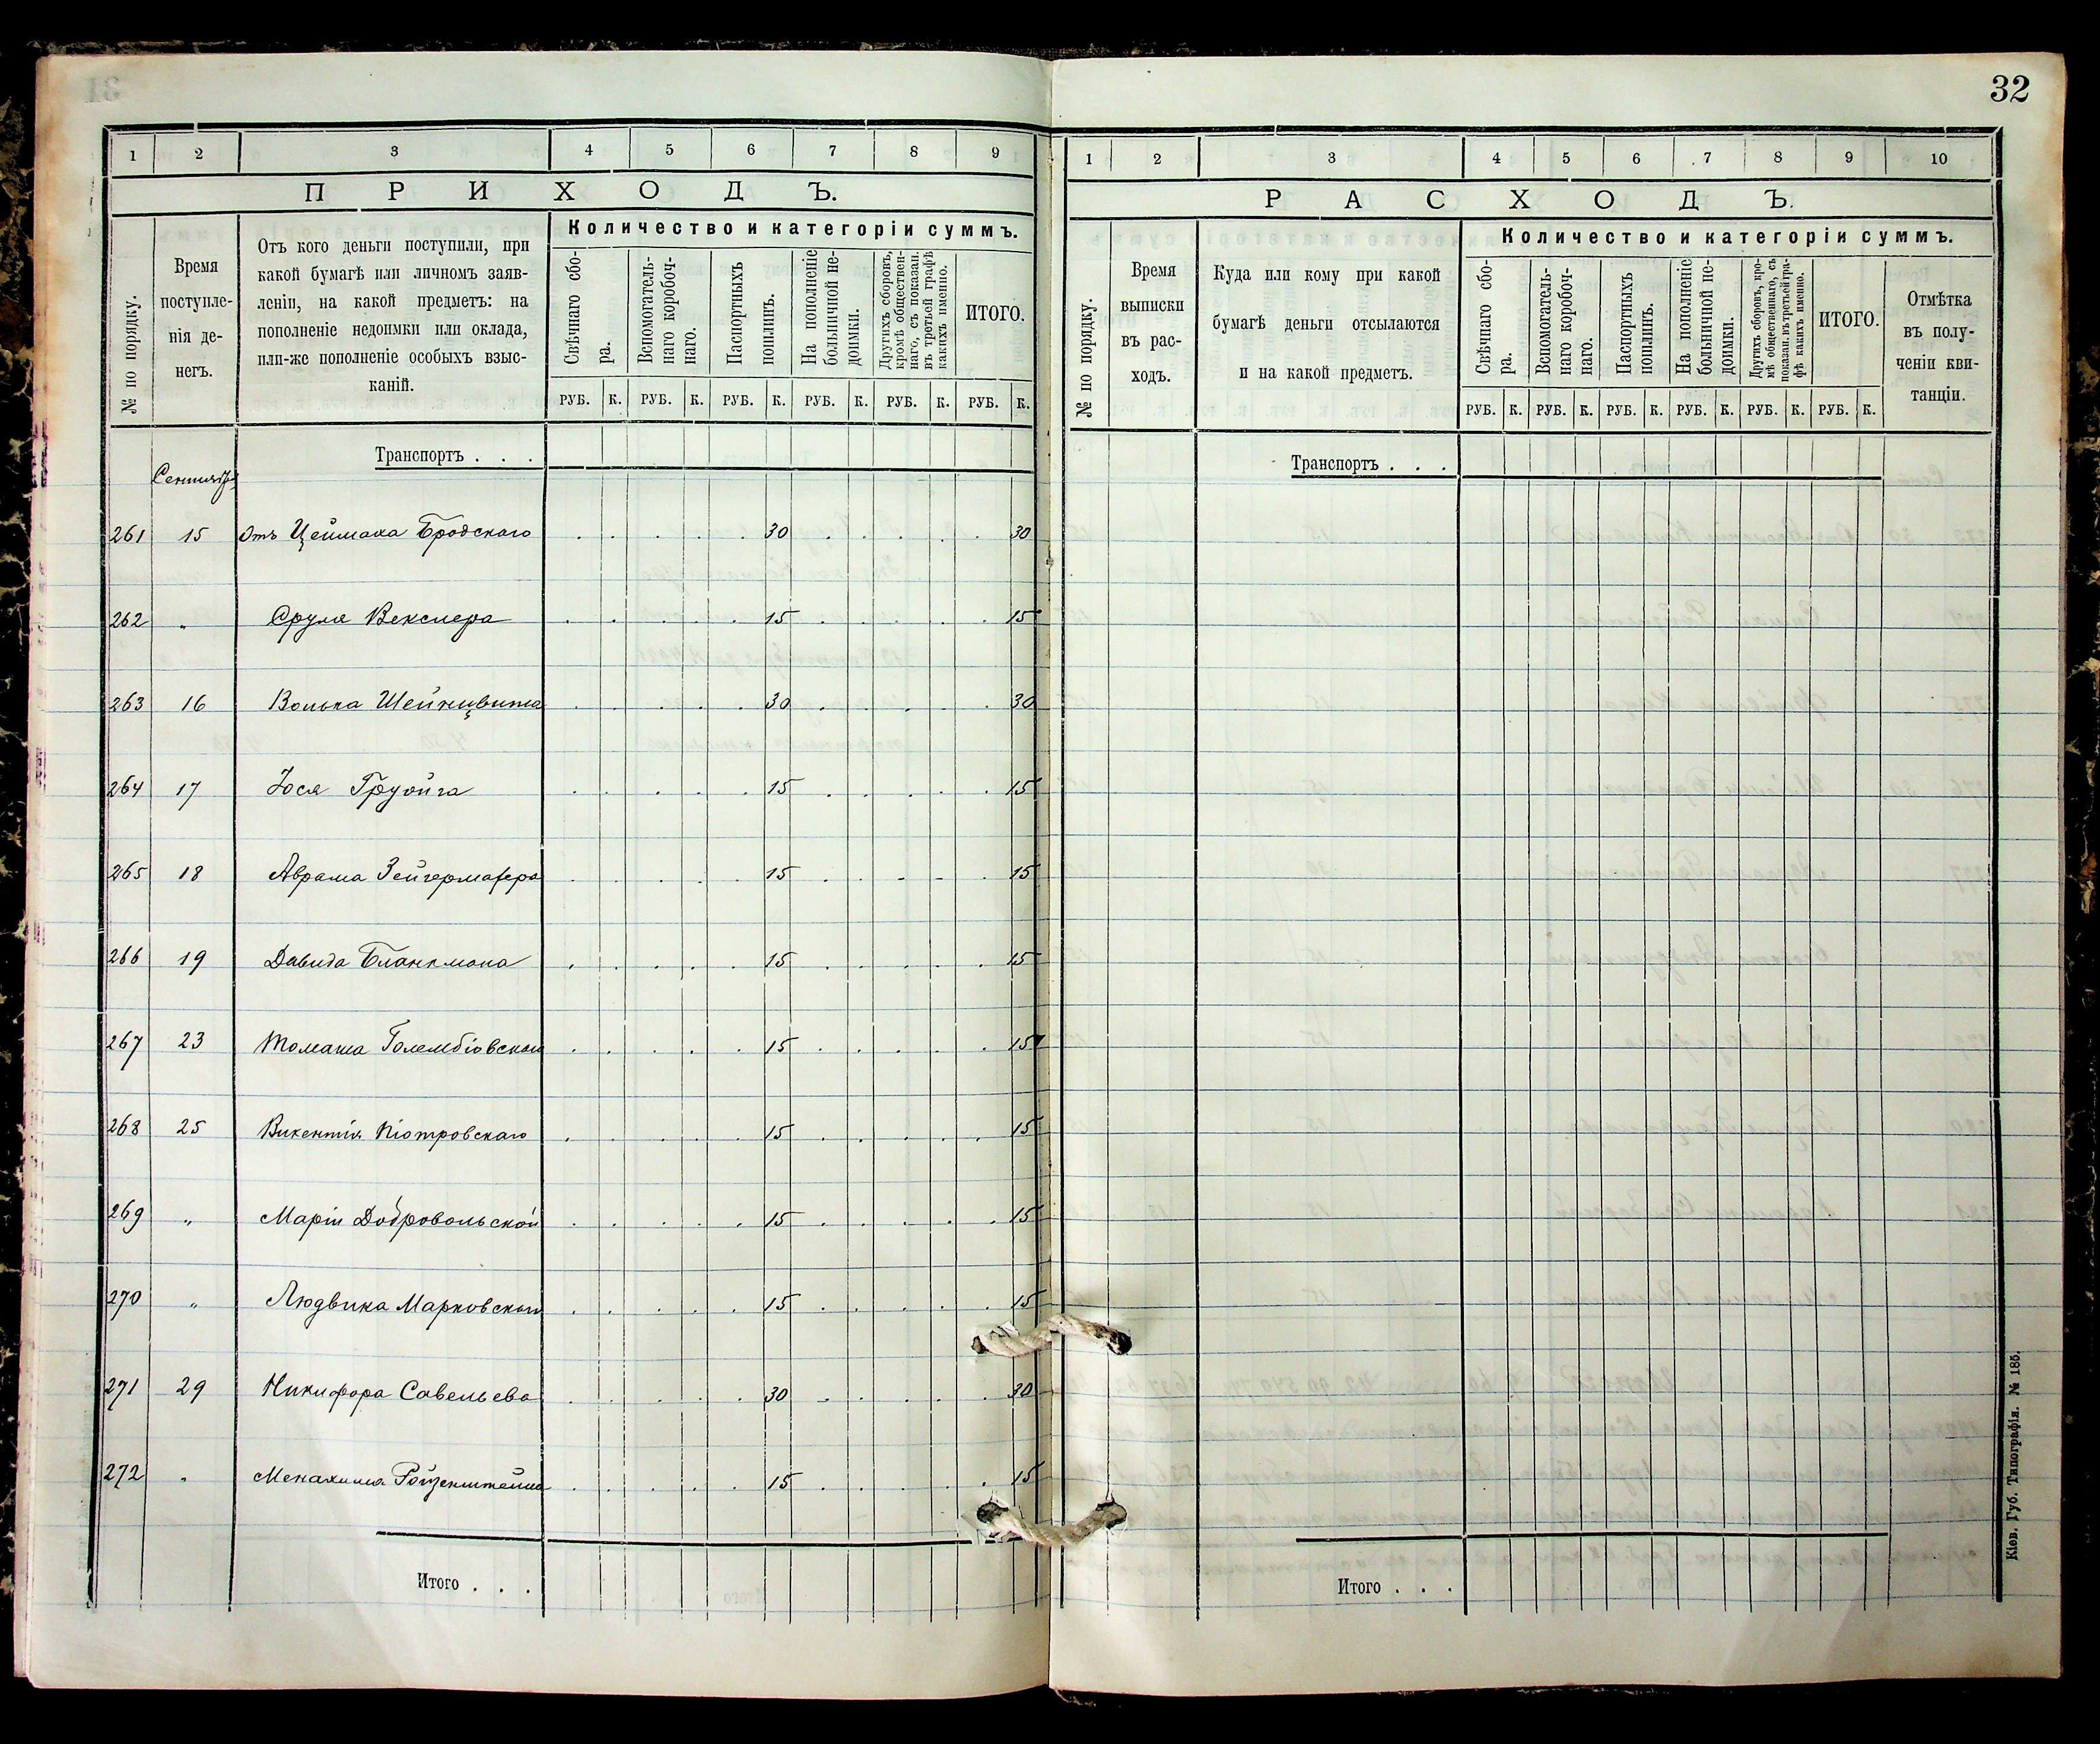 32
1 2 3 4 5 6 7 8 9
ПРИХОДЪ.
№ по порядку.
Время
поступле-
нія де-
негъ.
Отъ кого деньги поступили, при
какой бумагѣ или личномъ заяв-
леніи, на какой предметъ: на
пополненіе недоимки или оклада,
или-же пополненіе особыхъ взыс-
каній.
Количество и категоріи суммъ.
Свѣчнаго сбо-
ра.
Вспомогатель-
наго коробоч-
наго.
Паспортныхъ
пошлинъ.
На пополненіе
больничной не-
доимки.
Другихъ сборовъ,
кромѣ обществен-
наго, съ показан.
въ третьей графѣ
какихъ именно.
ИТОГО.
РУБ. К. РУБ. К. РУБ. К. РУБ. К. РУБ. К. РУБ. К.
Транспортъ . . .
Сентября
261 15 Отъ Цеймаха Бродскаго 30 30
262 " Сруля Векслера 15 15
263 16 Волька 30 30
264 17 Іося 15 15
265 18 Аврама Зейгермахера 15 15
266 19 Давида Бланкмана 15 15
267 23 Томаша Голембіовскаго 15 15
268 25 Викентія Піотровскаго 15 15
269 " Маріи Добровольской 15 15
270 " Людвика Марковскаго 15 15
271 29 Никифора Савельева 30 30
272 " Менахима Ройзенштейна 15 15
Итого . . .
1 2 3 4 5 6 7 8 9 10
РАСХОДЪ.
№ по порядку.
Время
выписки
въ рас-
ходъ.
Куда или кому при какой
бумагѣ деньги отсылаются
и на какой предметъ.
Количество и категоріи суммъ.
Свѣчнаго сбо-
ра.
Вспомогатель-
наго коробоч-
наго.
Паспортныхъ
пошлинъ.
На пополненіе
больничной не-
доимки.
Другихъ сборовъ, кро-
мѣ общественнаго, съ
показан. въ третьей гра-
фѣ какихъ именно.
ИТОГО.
Отмѣтка
въ полу-
ченіи кви-
танціи.
РУБ. К. РУБ. К. РУБ. К. РУБ. К. РУБ. К. РУБ. К.
Транспортъ . . .
Итого . . .
Кіев. Губ. Типографія. № 185.